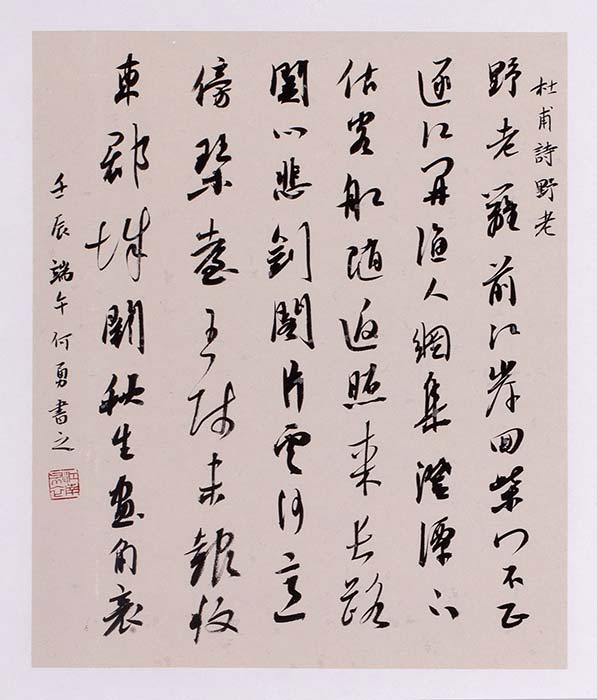 杜甫詩野老
野老籬前江岸回柴門不正
逐江開漁人網集澄潭下
估客船隨返照來長路
關心悲劍閣片雲何意
傍琴臺王師未報收
東郡城闕秋生畫角哀
壬辰端午何勇書之